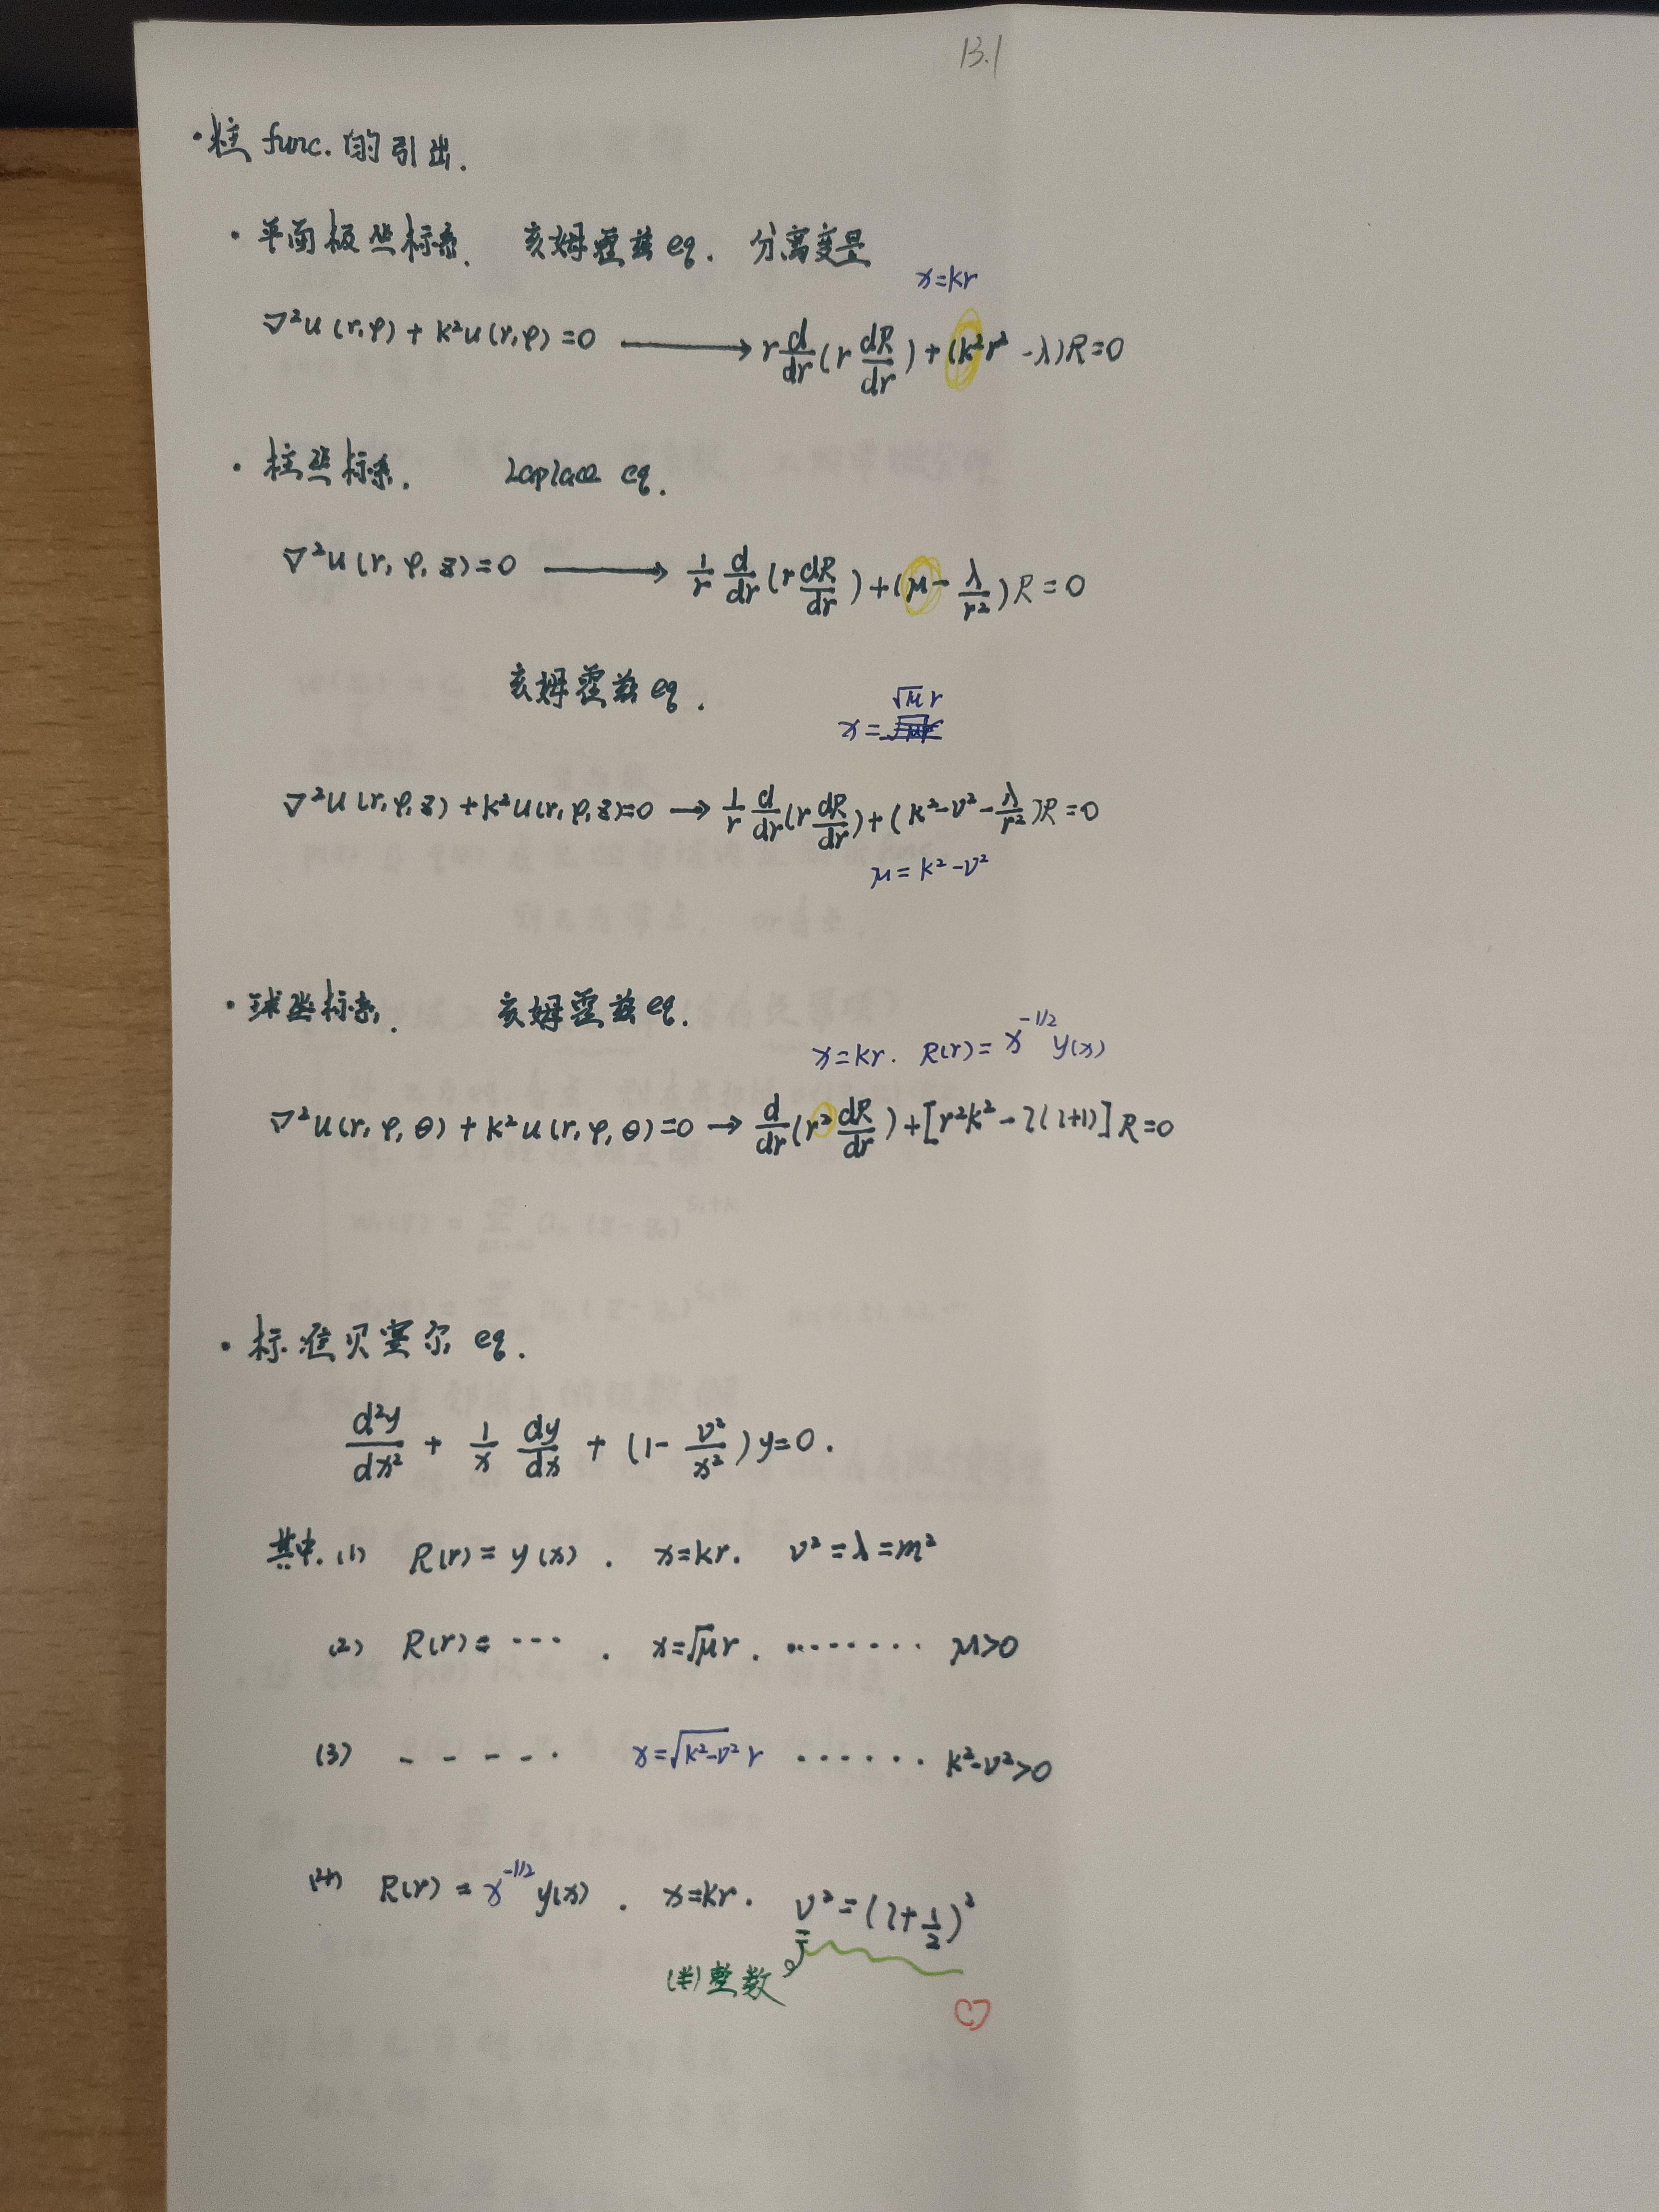 13.1
·柱 func. 的引出.
· 平面极坐标系. 亥姆霍兹 eq. 分离变量
x=kr
∇²u(r,φ) + k²u(r,φ)=0 ⟶ r d/dr (r dR/dr) + (k²r² - λ)R=0
· 柱坐标系. Laplace eq.
∇²u(r,φ,z)=0 ⟶ 1/r d/dr (r dR/dr) + (μ - λ/r²)R=0
亥姆霍兹 eq.
x=√μ r
∇²u(r,φ,z) + k²u(r,φ,z)=0 → 1/r d/dr (r dR/dr) + (k²-ν²-λ/r²)R=0
μ=k²-ν²
· 球坐标系. 亥姆霍兹 eq.
x=kr. R(r)= x^(-1/2) y(x)
∇²u(r,φ,θ) + k²u(r,φ,θ)=0 → d/dr (r² dR/dr) + [r²k² - l(l+1)]R=0
· 标准贝塞尔 eq.
d²y/dx² + 1/x dy/dx + (1- ν²/x²)y=0.
其中. (1) R(r)= y(x) . x=kr. ν²=λ=m²
(2) R(r)= ··· . x=√μ r . ········ μ>0
(3) - - - - - · x=√(k²-ν²) r ······ k²-ν²>0
(4) R(r) = x^(-1/2) y(x) . x=kr. ν²=(l+1/2)²
(半)整数